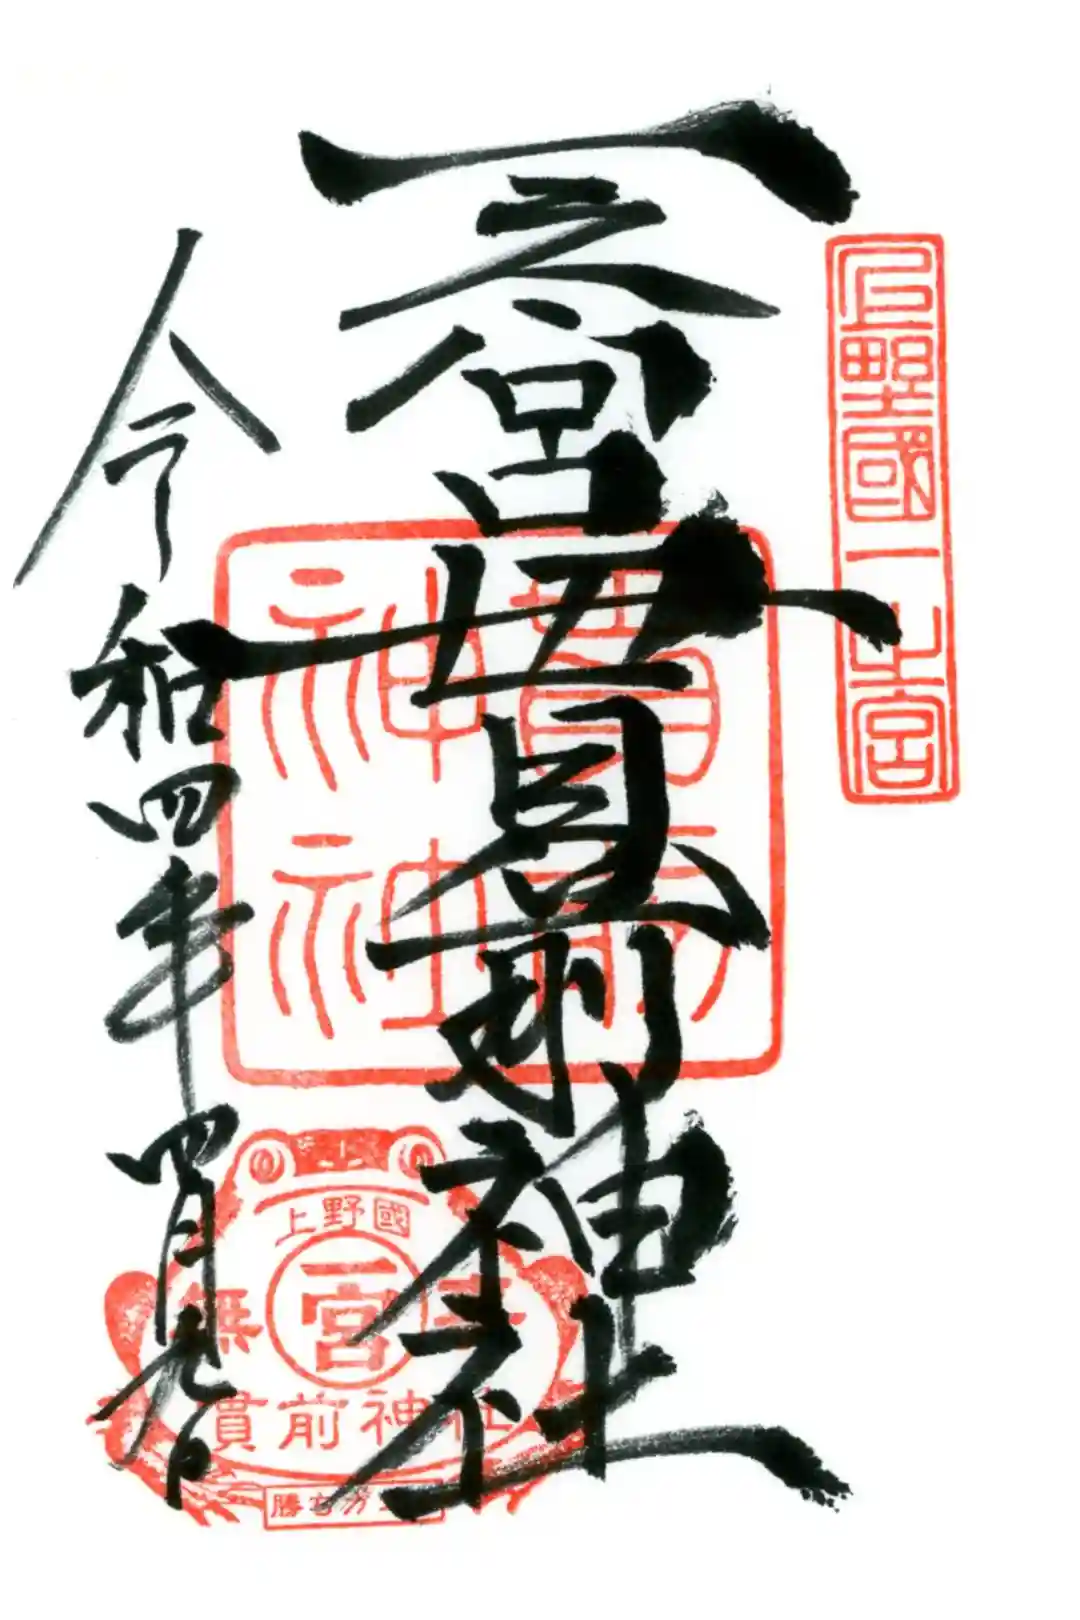 上野國一之宮
一之宮貫前神社
貫前神社
令和四年四月九日
上野國
一宮
無事
貫前神社
勝